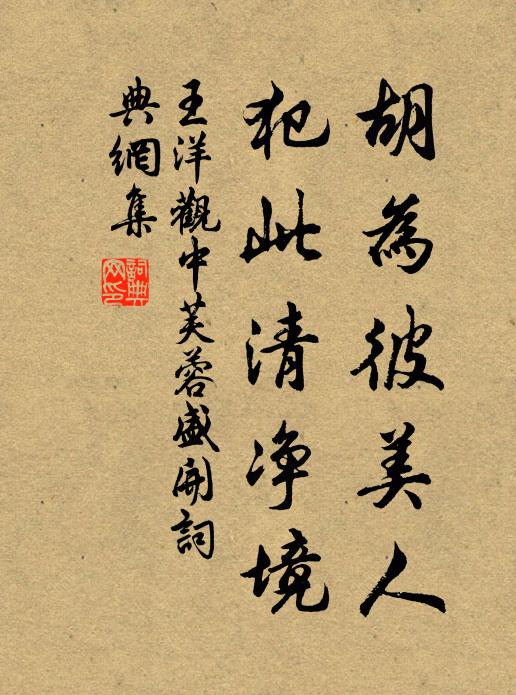 胡為彼美人
犯此清净境
王洋觀中芙蓉盛開詞
典網集
詞典
网印